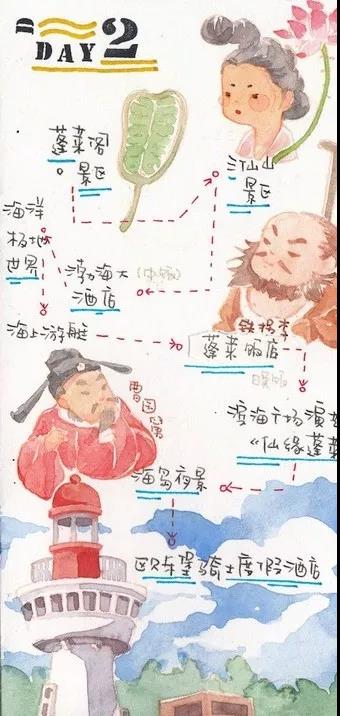 DAY 2
蓬莱阁
景区
三仙山
景区
海洋
极地
世界
渤海大
酒店
(中餐)
海上游艇
铁拐李
蓬莱饭店
晚饭
曹国舅
滨海广场演
《仙缘蓬莱
海岛夜景
欧乐堡骑士度假酒店